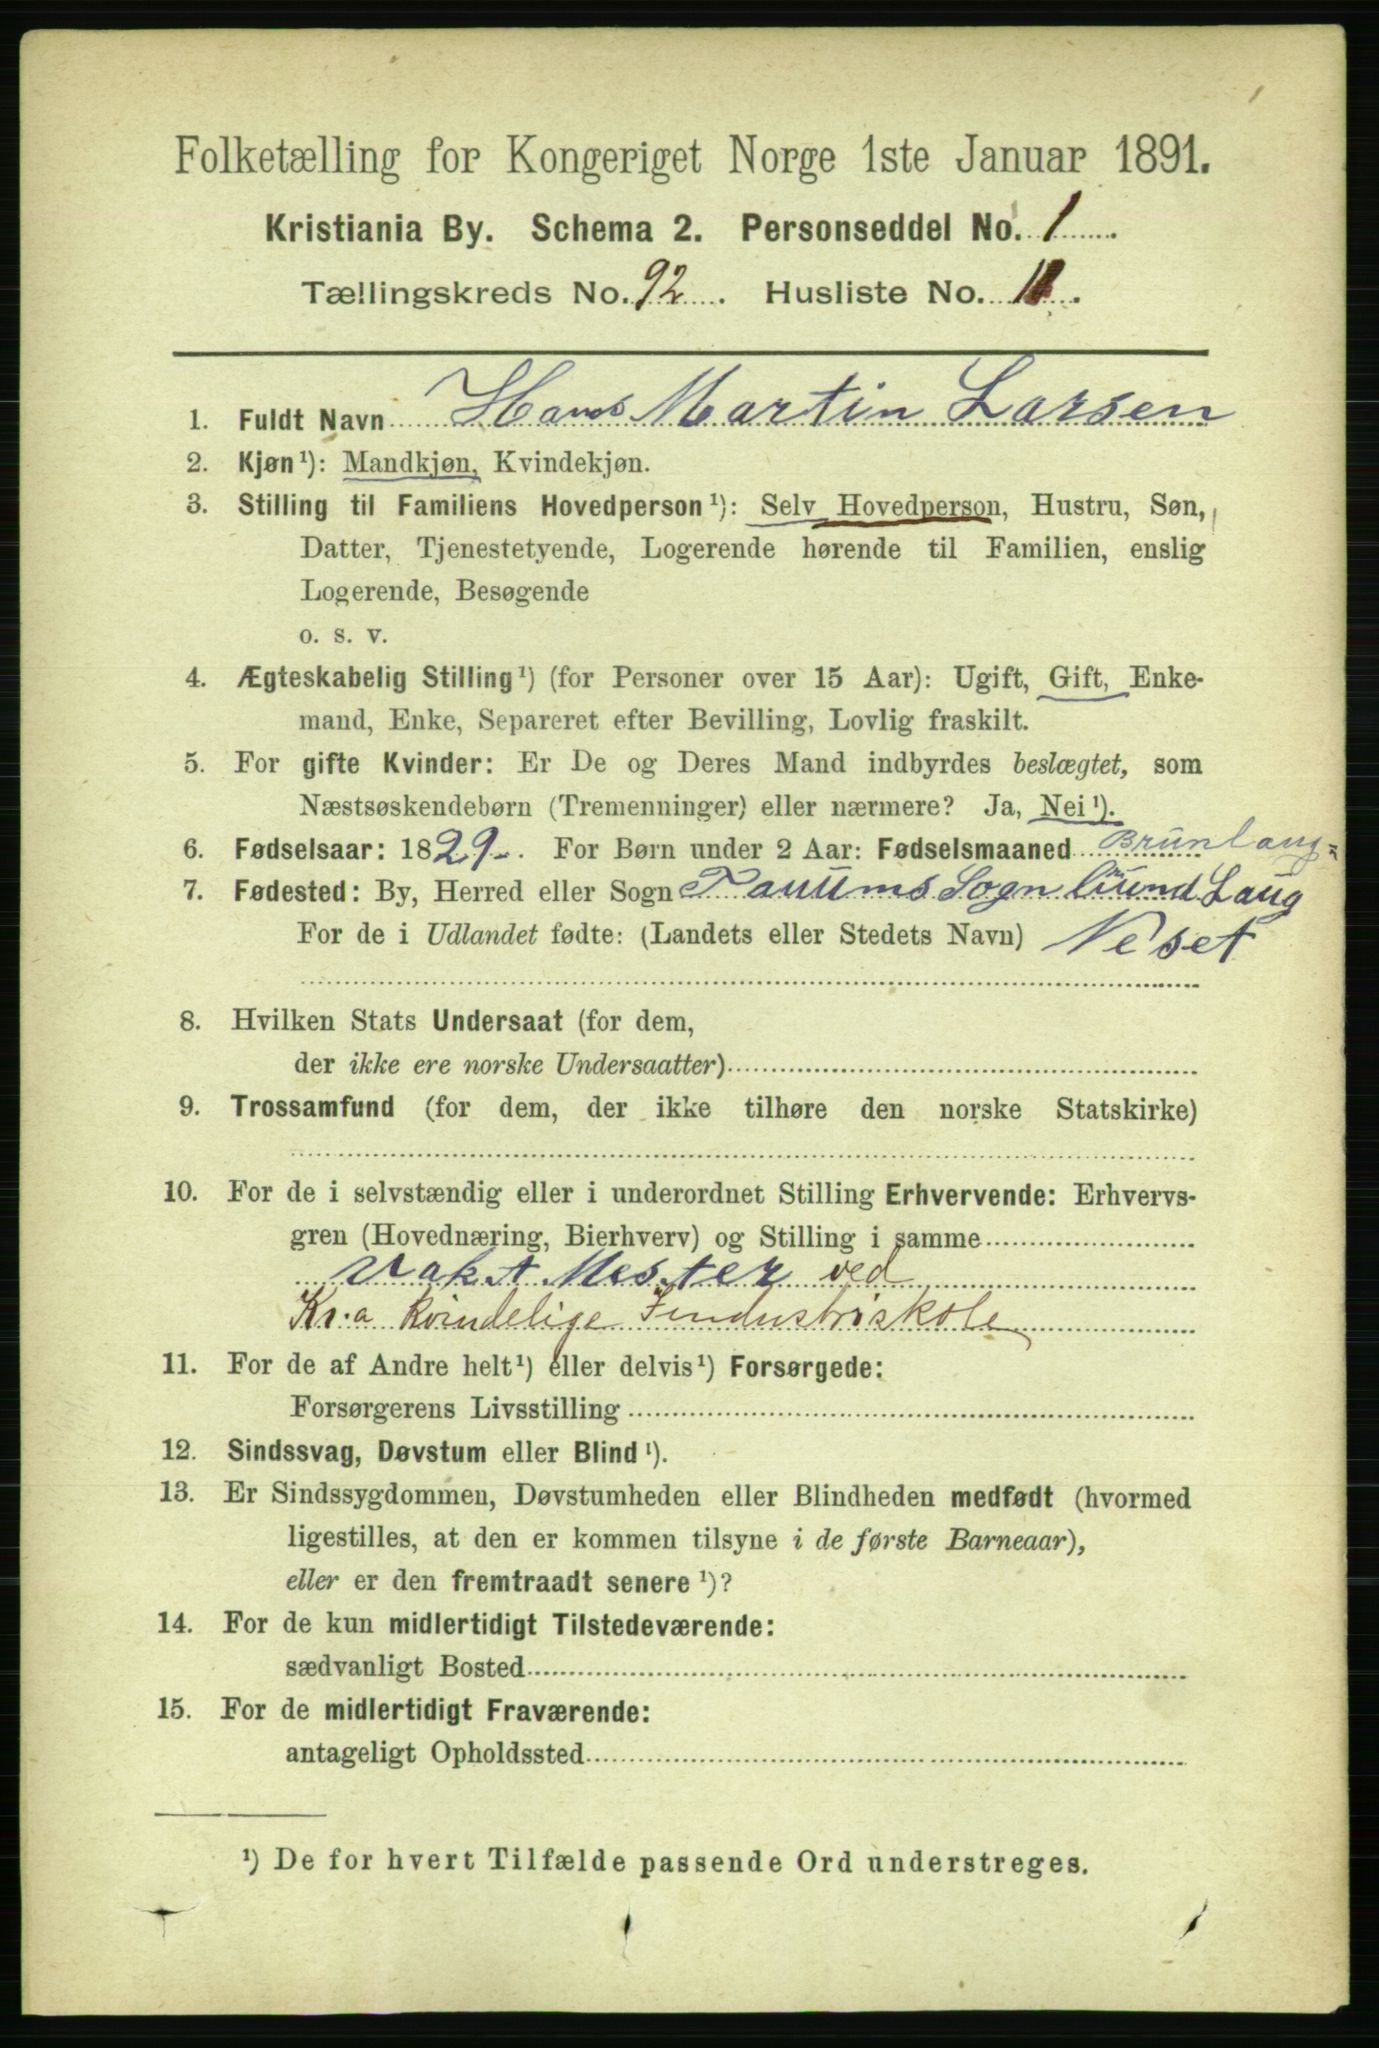 Folketælling for Kongeriget Norge 1ste Januar 1891.
Kristiania By. Schema 2. Personseddel No. 1
Tællingskreds No. 92. Husliste No.
1. Fuldt Navn Hans Martin Larsen
2. Kjøn¹): Mandkjøn, Kvindekjøn.
3. Stilling til Familiens Hovedperson¹): Selv Hovedperson, Hustru, Søn,
Datter, Tjenestetyende, Logerende hørende til Familien, enslig
Logerende, Besøgende
o. s. v.
4. Ægteskabelig Stilling¹) (for Personer over 15 Aar): Ugift, Gift, Enke-
mand, Enke, Separeret efter Bevilling, Lovlig fraskilt.
5. For gifte Kvinder: Er De og Deres Mand indbyrdes beslægtet, som
Næstsøskendebørn (Tremenninger) eller nærmere? Ja, Nei¹).
6. Fødselsaar: 1829. For Børn under 2 Aar: Fødselsmaaned Brunlaug-
7. Fødested: By, Herred eller Sogn Sogn Laug
For de i Udlandet fødte: (Landets eller Stedets Navn) Neset
8. Hvilken Stats Undersaat (for dem,
der ikke ere norske Undersaatter)
9. Trossamfund (for dem, der ikke tilhøre den norske Statskirke)
10. For de i selvstændig eller i underordnet Stilling Erhvervende: Erhvervs-
gren (Hovednæring, Bierhverv) og Stilling i samme
Vakt Mester ved
Kr.a kvindelige Industriskole
11. For de af Andre helt¹) eller delvis¹) Forsørgede:
Forsørgerens Livsstilling
12. Sindssvag, Døvstum eller Blind¹).
13. Er Sindssygdommen, Døvstumheden eller Blindheden medfødt (hvormed
ligestilles, at den er kommen tilsyne i de første Barneaar),
eller er den fremtraadt senere¹)?
14. For de kun midlertidigt Tilstedeværende:
sædvanligt Bosted
15. For de midlertidigt Fraværende:
antageligt Opholdssted
¹) De for hvert Tilfælde passende Ord understreges.